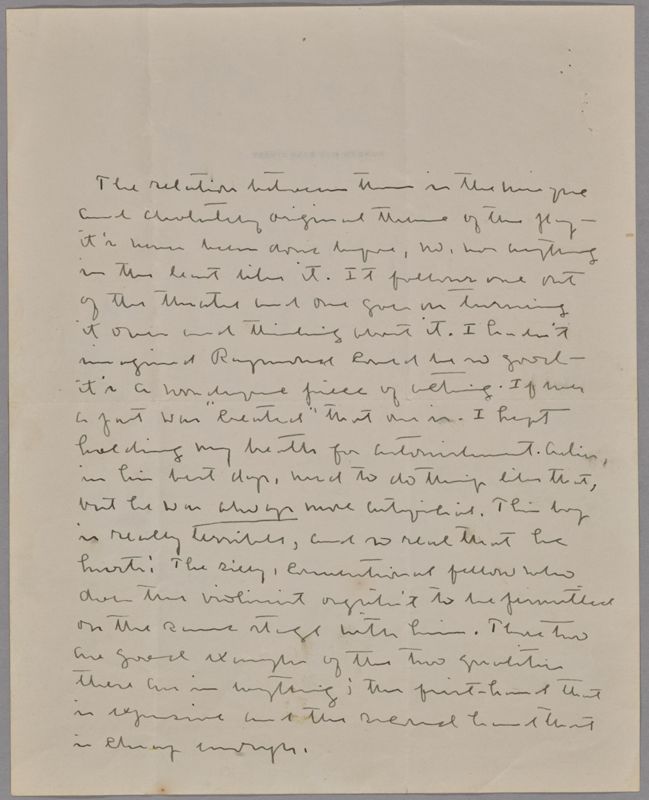 The relation between them is the unique
and absolutely original theme of the play—
it's never been done before, no, nor anything
in the least like it. It follows one out
of the theatre and one goes on turning
it over and thinking about it. I hadn't
imagined Raymond could be so good—
it's a wonderful piece of acting. If ever
a part was "created" that one is. I kept
holding my breath for astonishment.
in his best days, used to do things like that,
but he was always more artificial. This boy
is really terrible, and so real that he
hurts! The silly, conventional fellow who
does the violinist oughtn't to be permitted
on the same stage with him. These two
are good examples of the two qualities
there are in anything; the first-hand that
is expensive and the second hand that
is cheap enough.